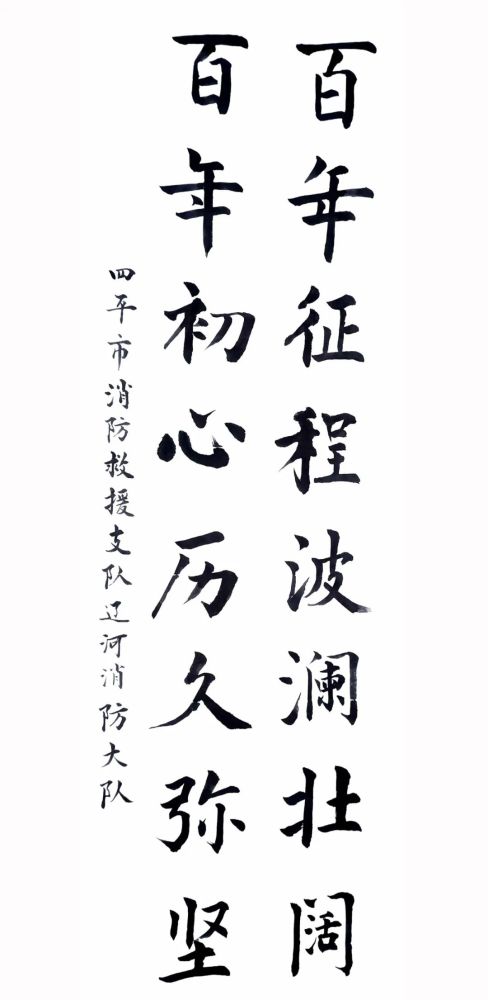 百年征程波澜壮阔
百年初心历久弥坚
四平市消防救援支队辽河消防大队